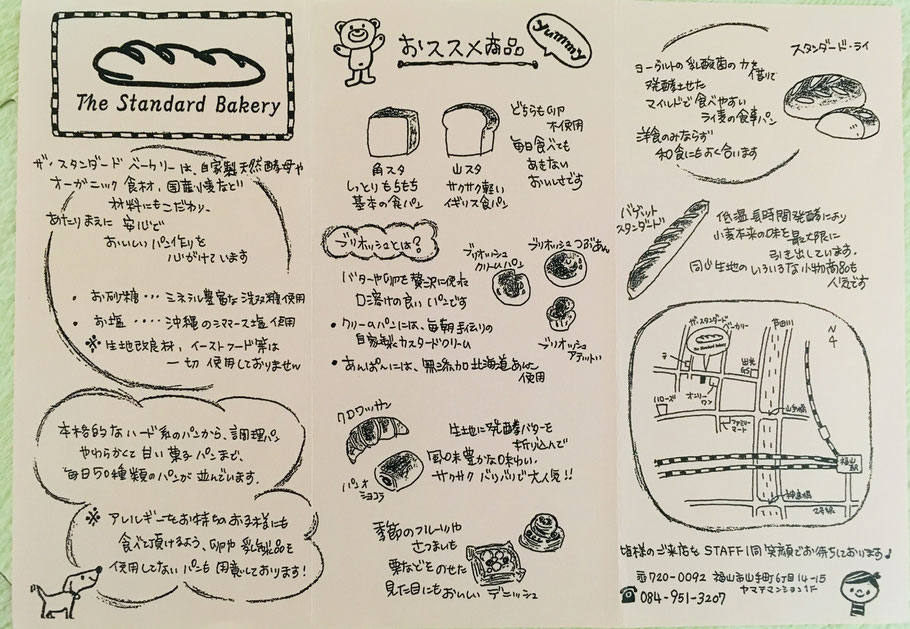 The Standard Bakery
ザ・スタンダード ベーカリーは、自家製天然酵母や
オーガニック食材、国産小麦など
材料にもこだわり、
あたりまえに 安心で
おいしいパン作りを
心がけています
・お砂糖・・・ミネラル豊富な洗双糖使用
・お塩・・・・沖縄のシママース塩使用
※生地改良材、イーストフード等は
一切 使用しておりません
本格的なハード系のパンから、調理パン
やわらかくて甘い菓子パンまで、
毎日50種類のパンが並んでいます。
※アレルギーをお持ちのお子様にも
食べて頂けるよう、卵や乳製品を
使用してないパンも用意しております!
おススメ商品
yummy
角スタ
しっとりもちもち
基本の食パン
山スタ
サクサク軽い
イギリス食パン
どちらも卵
不使用
毎日食べても
あきない
おいしさです
ブリオッシュとは?
バターや卵を贅沢に使った
口溶けの良いパンです
・クリームパンには、毎朝手作りの
自家製カスタードクリーム
・あんぱんには、無添加北海道あんこ
使用
ブリオッシュ
クリームパン
ブリオッシュつぶあん
ブリオッシュ
アテット
クロワッサン
パンオ
ショコラ
生地に発酵バターを
折り込んで
風味豊かな味わい
サクサク バリバリで大人気!!
季節のフルーツや
さつまいも
栗などをのせた
見た目にもおいしい デニッシュ
スタンダード・ライ
ヨーグルトの乳酸菌の力を
借りて
発酵させた
マイルドで食べやすい
ライ麦の食事パン
洋食のみならず
和食にもよく合います
バゲット
スタンダード
低温長時間発酵により
小麦本来の味を最大限に
引き出しています。
同じ生地のいろいろな小物商品も
人気です
ザ・スタンダード
ベーカリー
The Standard Bakery
芦田川
N
4
〒
出光
GS
オンリー
ワン
ハローズ
山手橋
ファミリー
マート
福山
駅
神島橋
2号線
皆様のご来店をSTAFF一同笑顔でお待ちしております♪
〒720-0092 福山市山手町6丁目14-15
ヤマテマンション1F
☎084-951-3207